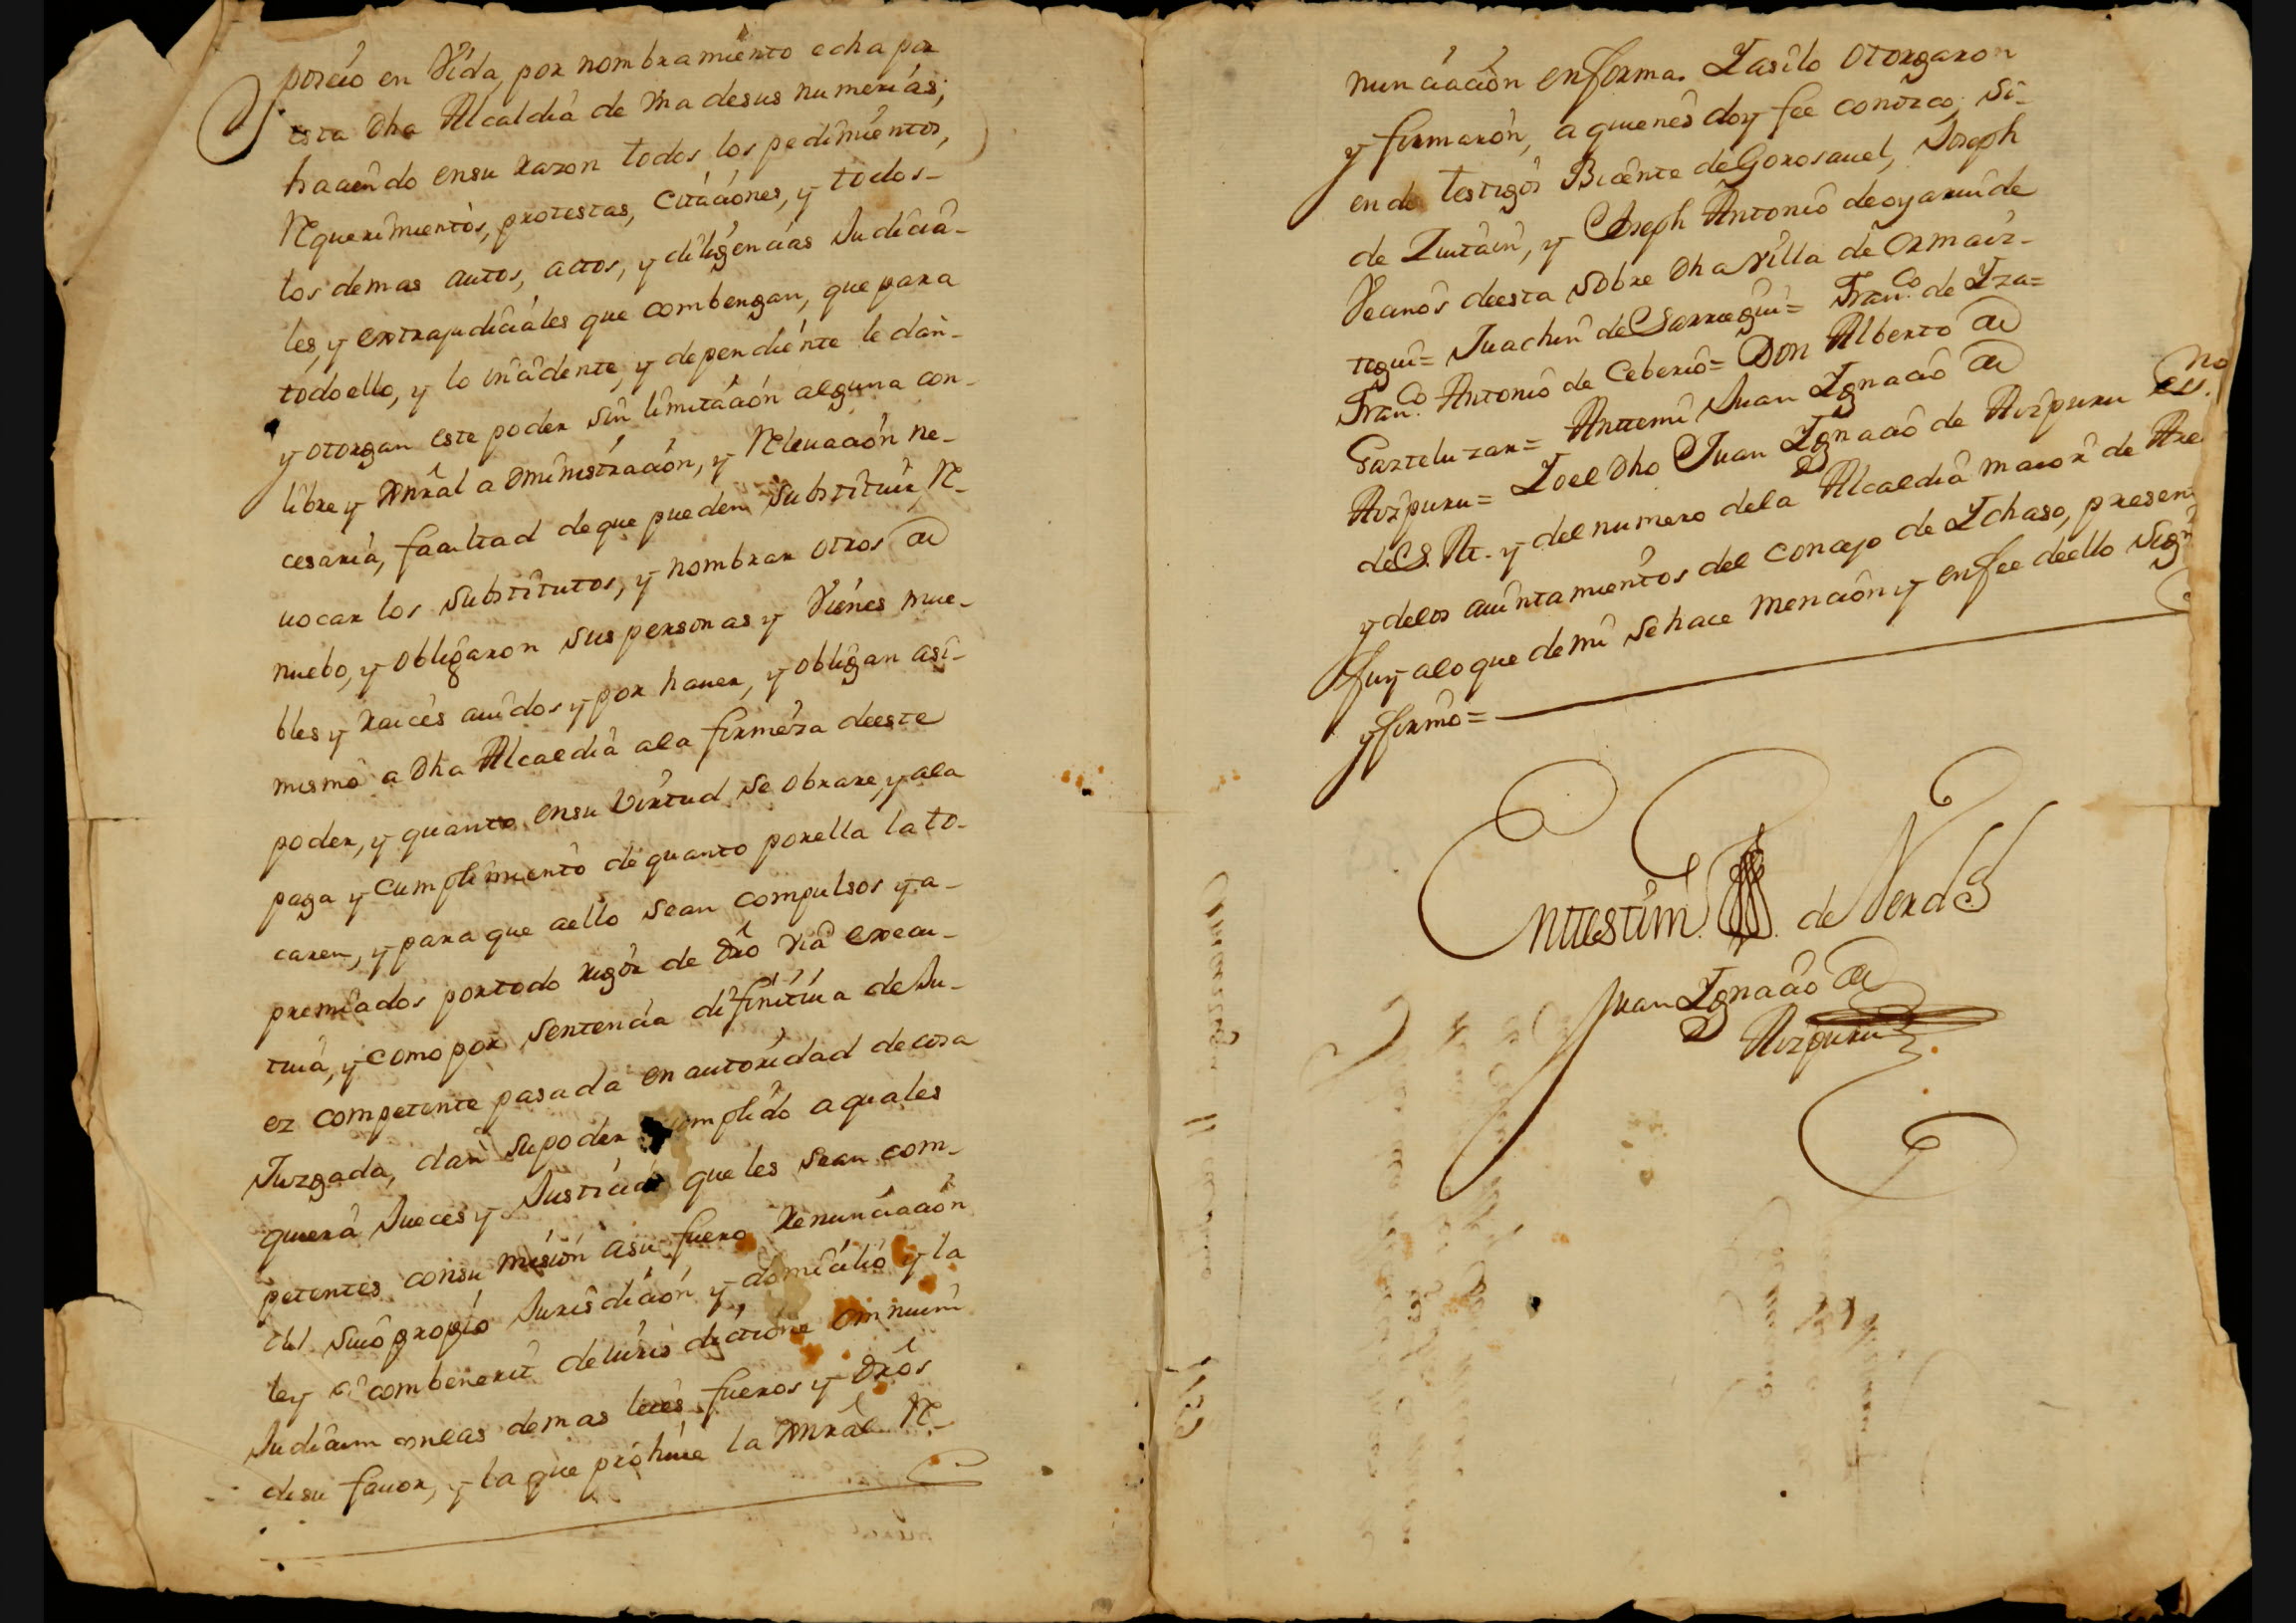 poseio en Vida, por nombramiento echa por
esta Dha Alcaldia de Vna desus numerias;
haciendo ensu razon todos los pedimientos,
Requerimientos, protestas, citaciones, y todos-
los demas autos, actos, y diligencias Judicia-
les, y extrajudiciales que combengan, que para
todo ello, y lo incidente, y dependiente le dan-
y otorgan este poder sin limitacion alguna con-
libre y Gnral administracion, y Releuacion ne-
cesaria, facultad de que pueden substituir, Re-
uocar los substitutos, y nombrar otros de
nuebo, y obligaron sus personas y Vienes mue-
bles y raices auidos y por hauer, y obligan asi-
mismo a Dha Alcaldia ala firmeza deeste
poder, y quanto ensu Virtud se obrare, y ala
paga y cumplimiento de quanto porella la to-
caren, y para que aello sean compulsos y a-
premiados por todo rigor de Dro Via execu-
tiua, y como por sentencia difinitiua de Ju-
ez competente pasada en autoridad de cosa
Juzgada, dan supoder cumplido a quales
quiera Jueces y Justicias que les sean com-
petentes consu misión asu fuero Renunciacion
del suio propio Jurisdicion y domicilio y la
ley si combenerit de iuris dictione omnium
Judicum con las demas leies fueros y Dros
desu fauor, y la que prohiue la Gnral Re-
nunciacion enforma. Y asilo otorgaron
y firmaron, a quienes doy fee conozco, si-
endo testigos Bicente de Gorosauel, Joseph
de Iurtain, y Joseph Antonio de oyaruide
Vecinos deesta sobre Dha Villa de Ormaiz-
tegui= Juachin de Sarriegui= Franco. de Yza=
Franco. Antonio de Ceberio= Don Alberto de
Gazteluzar= Anttemi Juan Ygnacio de
Aizpuru= Yo el Dho Juan Ygnacio de Aizpuru essno.
de S. M. y del numero dela Alcaldia maior de Are
y delos auintamientos del concejo de Ychaso, presen
fuy alo que de mi se hace mencion y enfee deello sign
y firmo=
Enttestim. de Verdd
Juan Ygnacio de
Aizpuru